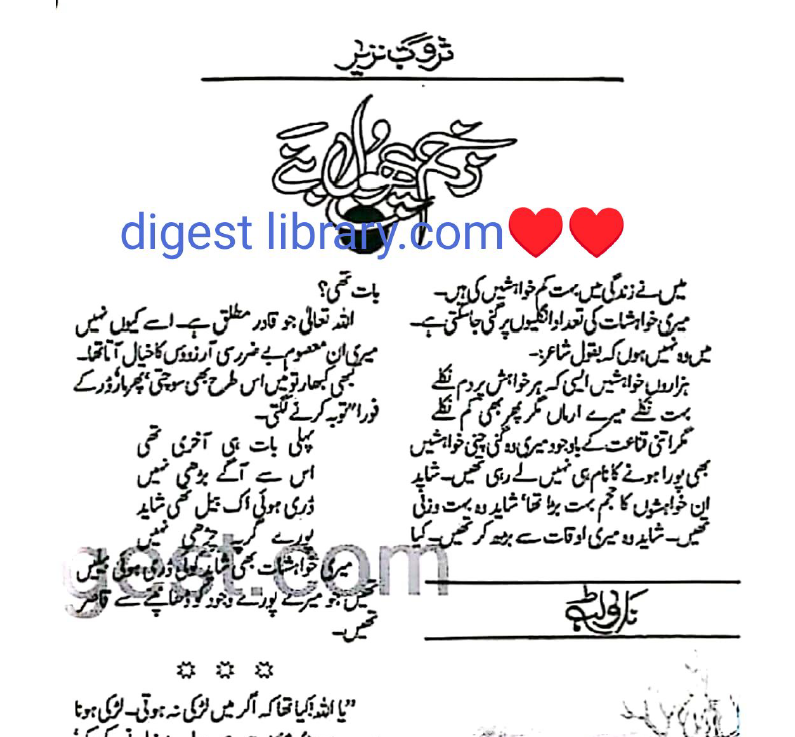 ثروت نذیر
digest library.com
میں نے زندگی میں بہت کم خواہشیں کی ہیں۔
میری خواہشات کی تعداد انگلیوں پر گنی جا سکتی ہے۔
میں وہ نہیں ہوں کہ بقول شاعر:۔
ہزاروں خواہشیں ایسی کہ ہر خواہش پر دم نکلے
بہت نکلے میرے ارماں مگر پھر بھی کم نکلے
مگر اتنی قناعت کے باوجود میری وہ گنی چنی خواہشیں
بھی پورا ہونے کا نام ہی نہیں لے رہی تھیں۔ شاید
ان خواہشوں کا حجم بہت بڑا تھا‘ شاید وہ بہت وزنی
تھیں۔ شاید وہ میری اوقات سے بڑھ کر تھیں۔ کیا
ناولٹ
بات تھی؟
اللہ تعالٰی جو قادر مطلق ہے۔ اسے کیوں نہیں
میری ان معصوم بے ضرر سی آرزوؤں کا خیال آتا تھا۔
کبھی کبھار تو میں اس طرح بھی سوچتی‘ پھر ڈر کے
فورا" توبہ کرنے لگتی۔
پہلی بات ہی آخری تھی
اس سے آگے بڑھی نہیں
ڈری ہوئی اک بیل تھی شاید
پورے گھر پہ چڑھی نہیں
میری خواہشات بھی شاید کوئی ڈری ہوئی بیلیں
تھیں جو میرے پورے وجود کو ڈھانپنے سے قاصر
تھیں۔
gest.com
"یا اللہ! کیا تھا کہ اگر میں لڑکی نہ ہوتی۔ لڑکی ہونا